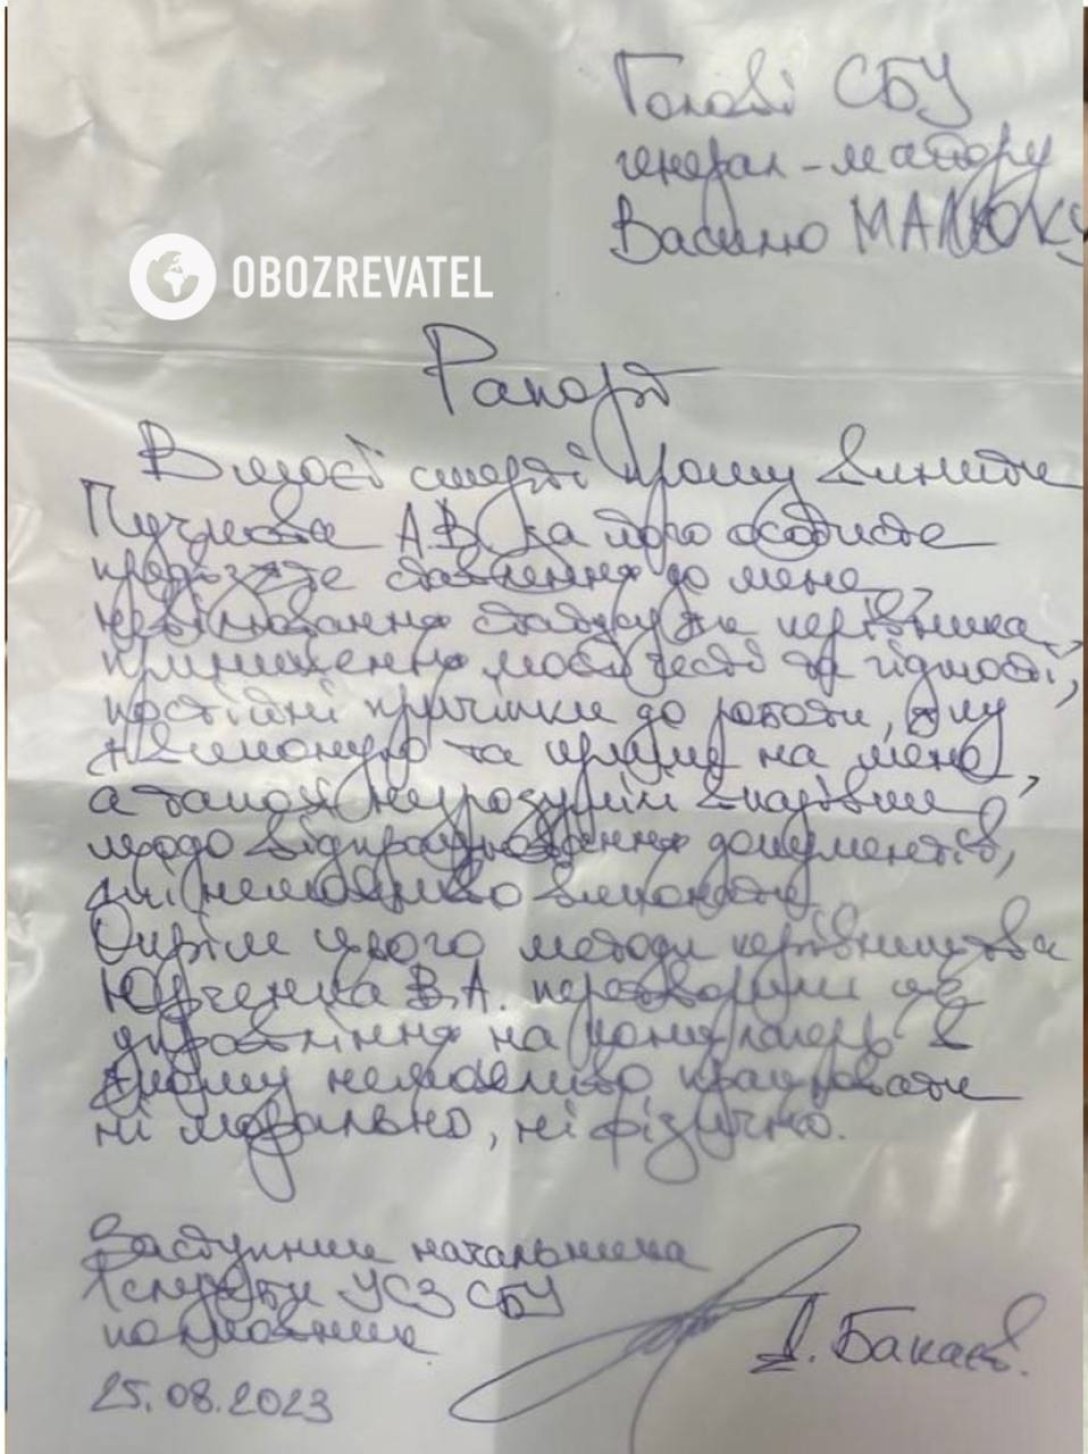 Голові СБУ
генерал-майору
Василю МАЛЮКУ
OBOZREVATEL
Рапорт
В моєї смерті прошу винити
А.В. за його особисте
предвзяте ставлення до мене,
нівілювання статусу як керівника,
приниження моєї честі та гідності,
постійні причіпки до роботи, яку
я виконую та крики на мене,
а також незрозумілі вказівки
щодо відпрацювання документів,
які неможливо виконати
Окрім цього методи керівництва
Юрченка В.А. перетворили це
управління на концлагерь в
якому неможливо працювати
ні морально, ні фізично.
Заступник начальника
1 служби УСЗ СБУ
полковник
Бакаєв.
25.08.2023